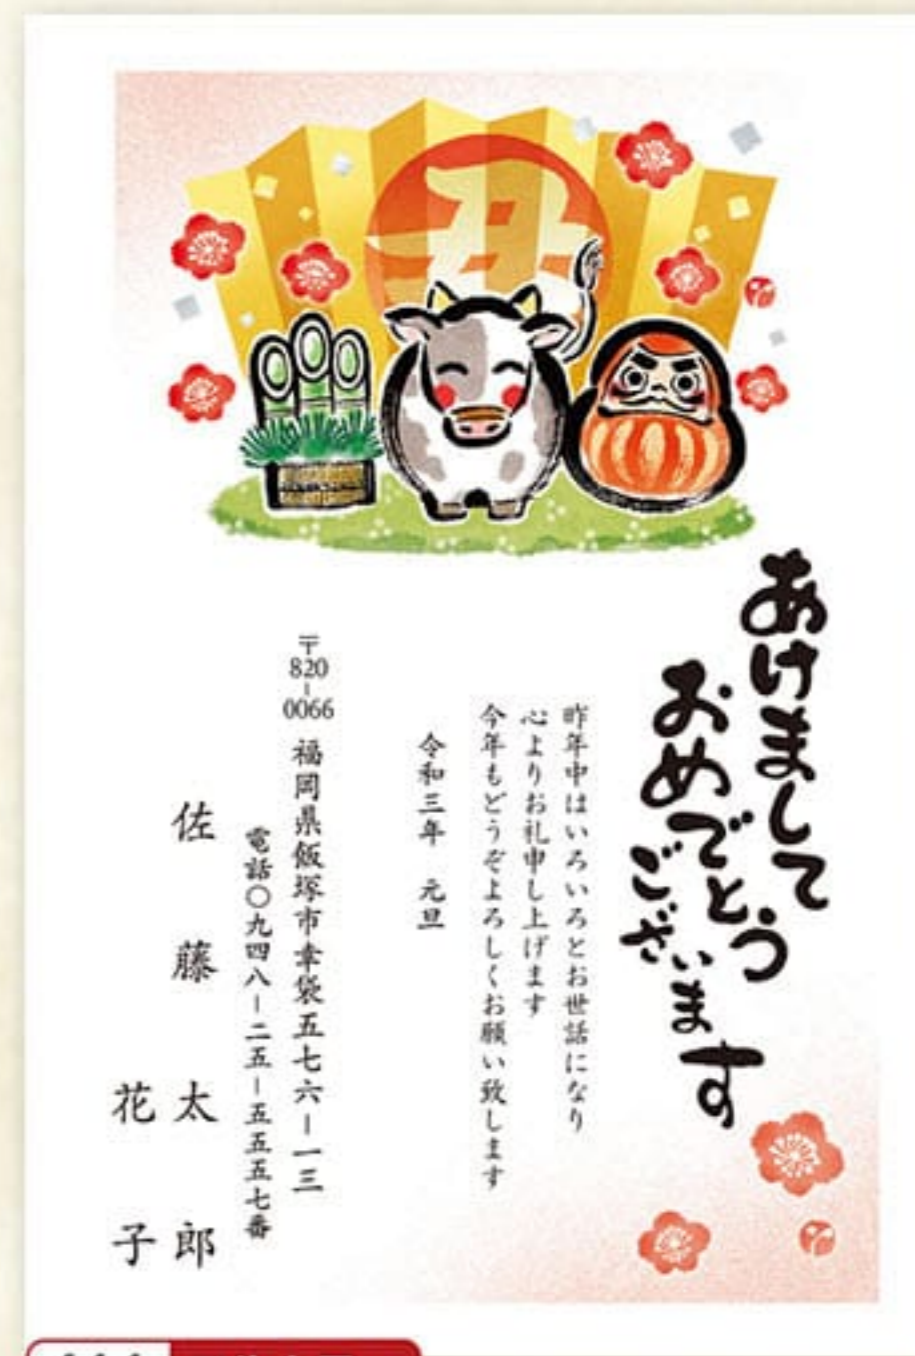 丑
あけまして
おめでとう
ございます
昨年中はいろいろとお世話になり
心よりお礼申し上げます
今年もどうぞよろしくお願い致します
令和三年　元旦
〒820-0066 福岡県飯塚市幸袋五七六－一三
電話〇九四八－二五－五五五七番
佐藤　太郎
花子